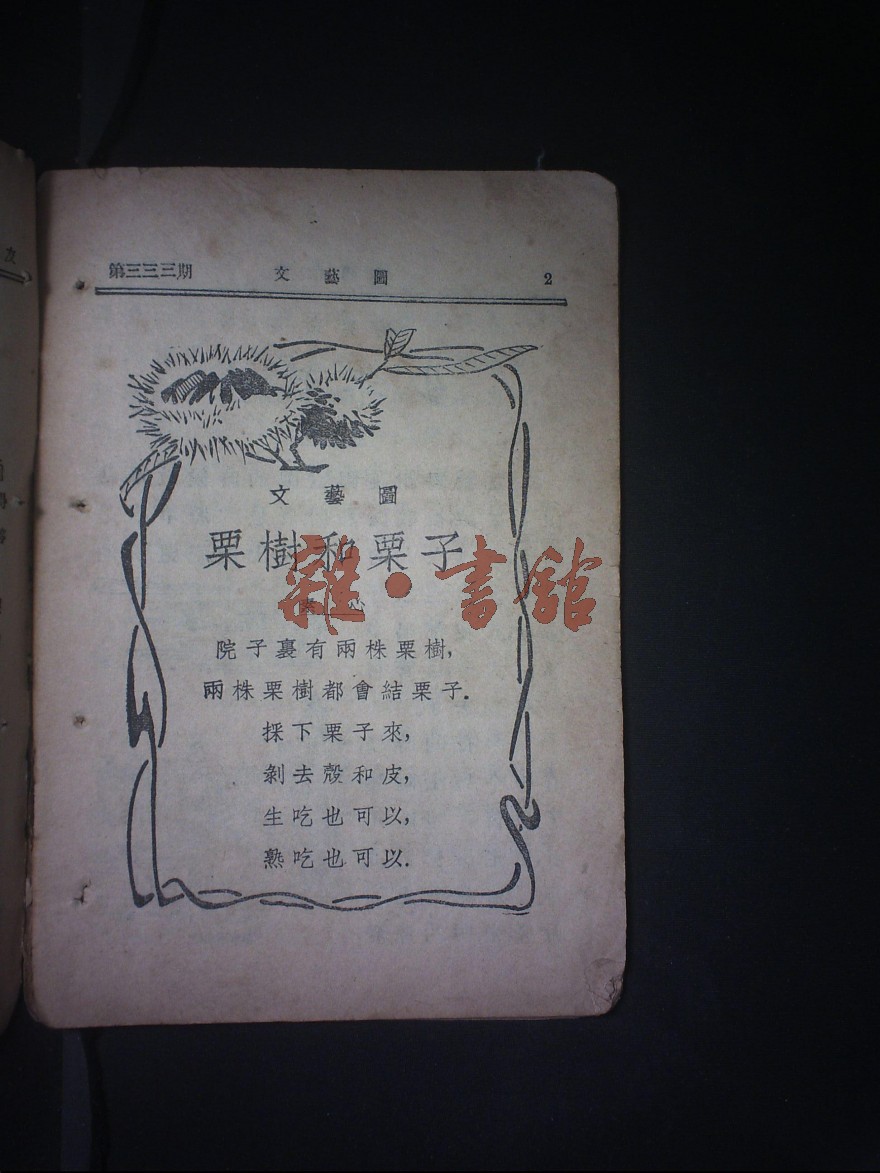 第三三三期 文藝圖 2
文藝圖
栗樹和栗子
心
雜·書館
院子裏有兩株栗樹,
兩株栗樹都會結栗子.
採下栗子來,
剝去殼和皮,
生吃也可以,
熟吃也可以.